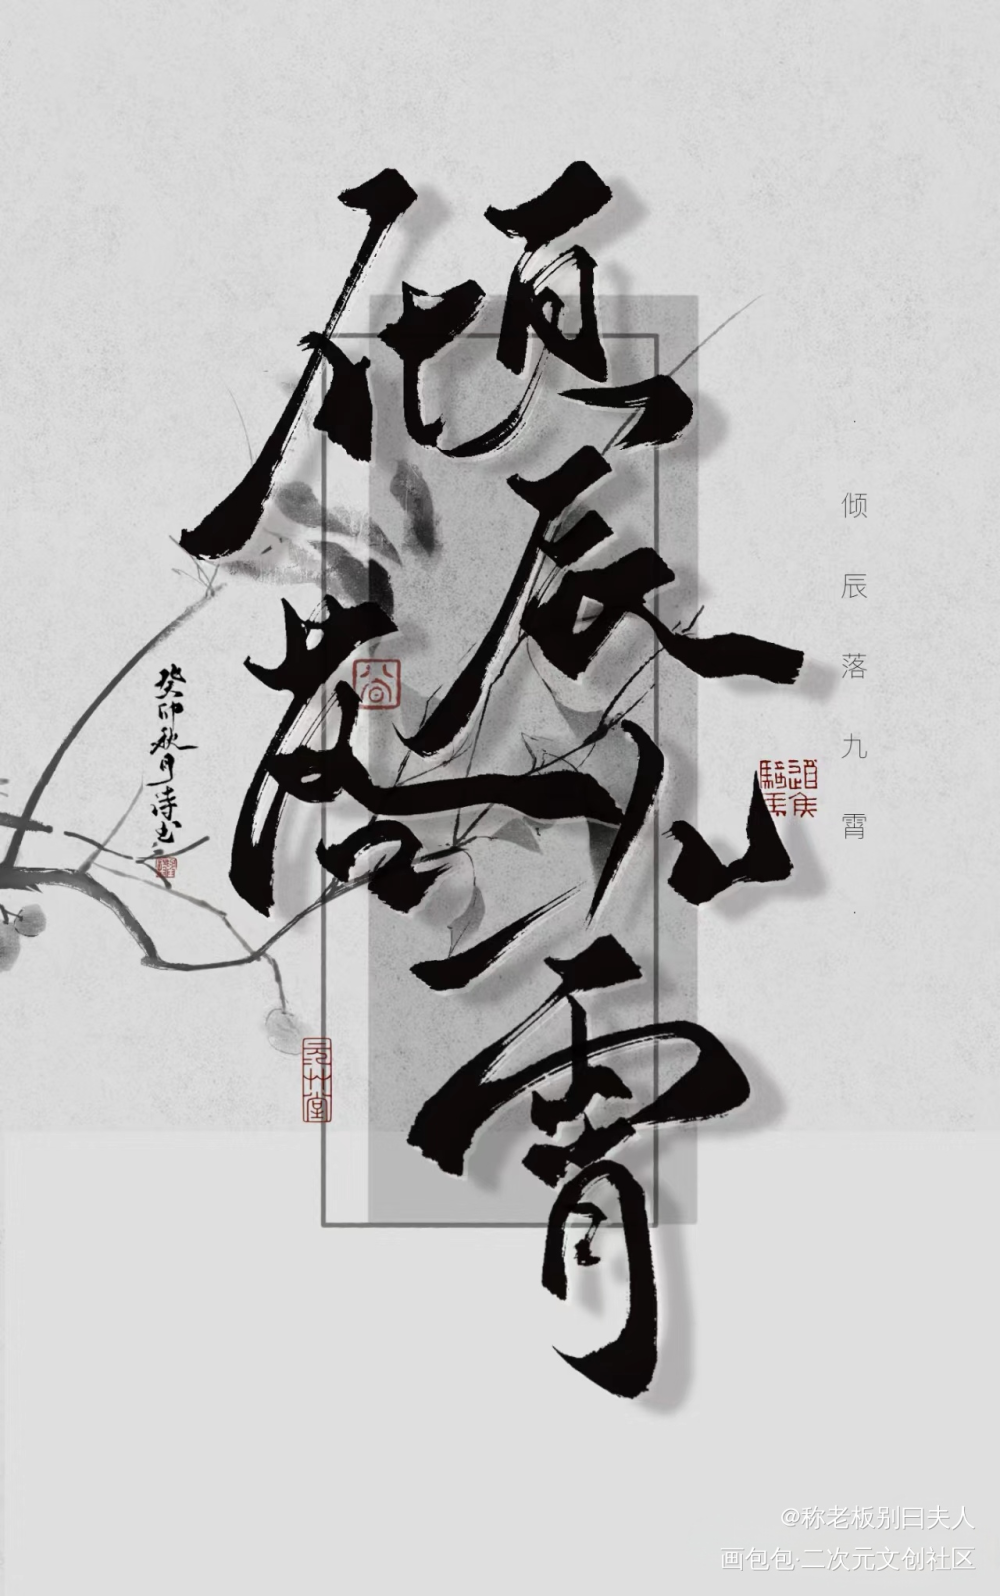 傾辰落九霄
倾辰落九霄
癸卯秋月诗书
谷
元廿堂
@称老板别曰夫人
画包包·二次元文创社区